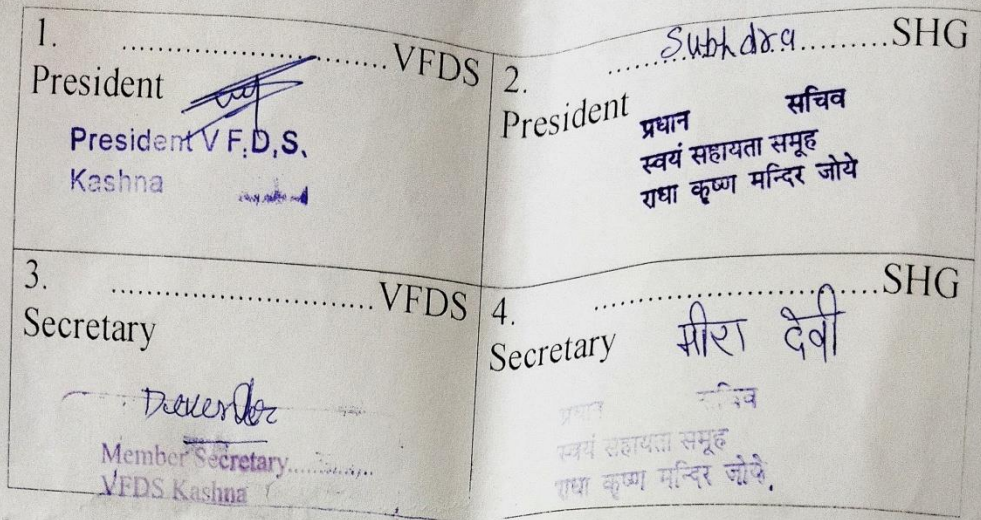 1. ..............................VFDS
President
President V F.D.S.
Kashna
2. Subhdra.........SHG
President
प्रधान सचिव
स्वयं सहायता समूह
राधा कृष्ण मन्दिर जोये
3. .............................VFDS
Secretary
Devender
Member Secretary............
VFDS Kashna
4. ...............................SHG
Secretary
मीरा देवी
प्रधान सचिव
स्वयं सहायता समूह
राधा कृष्ण मन्दिर जोये.